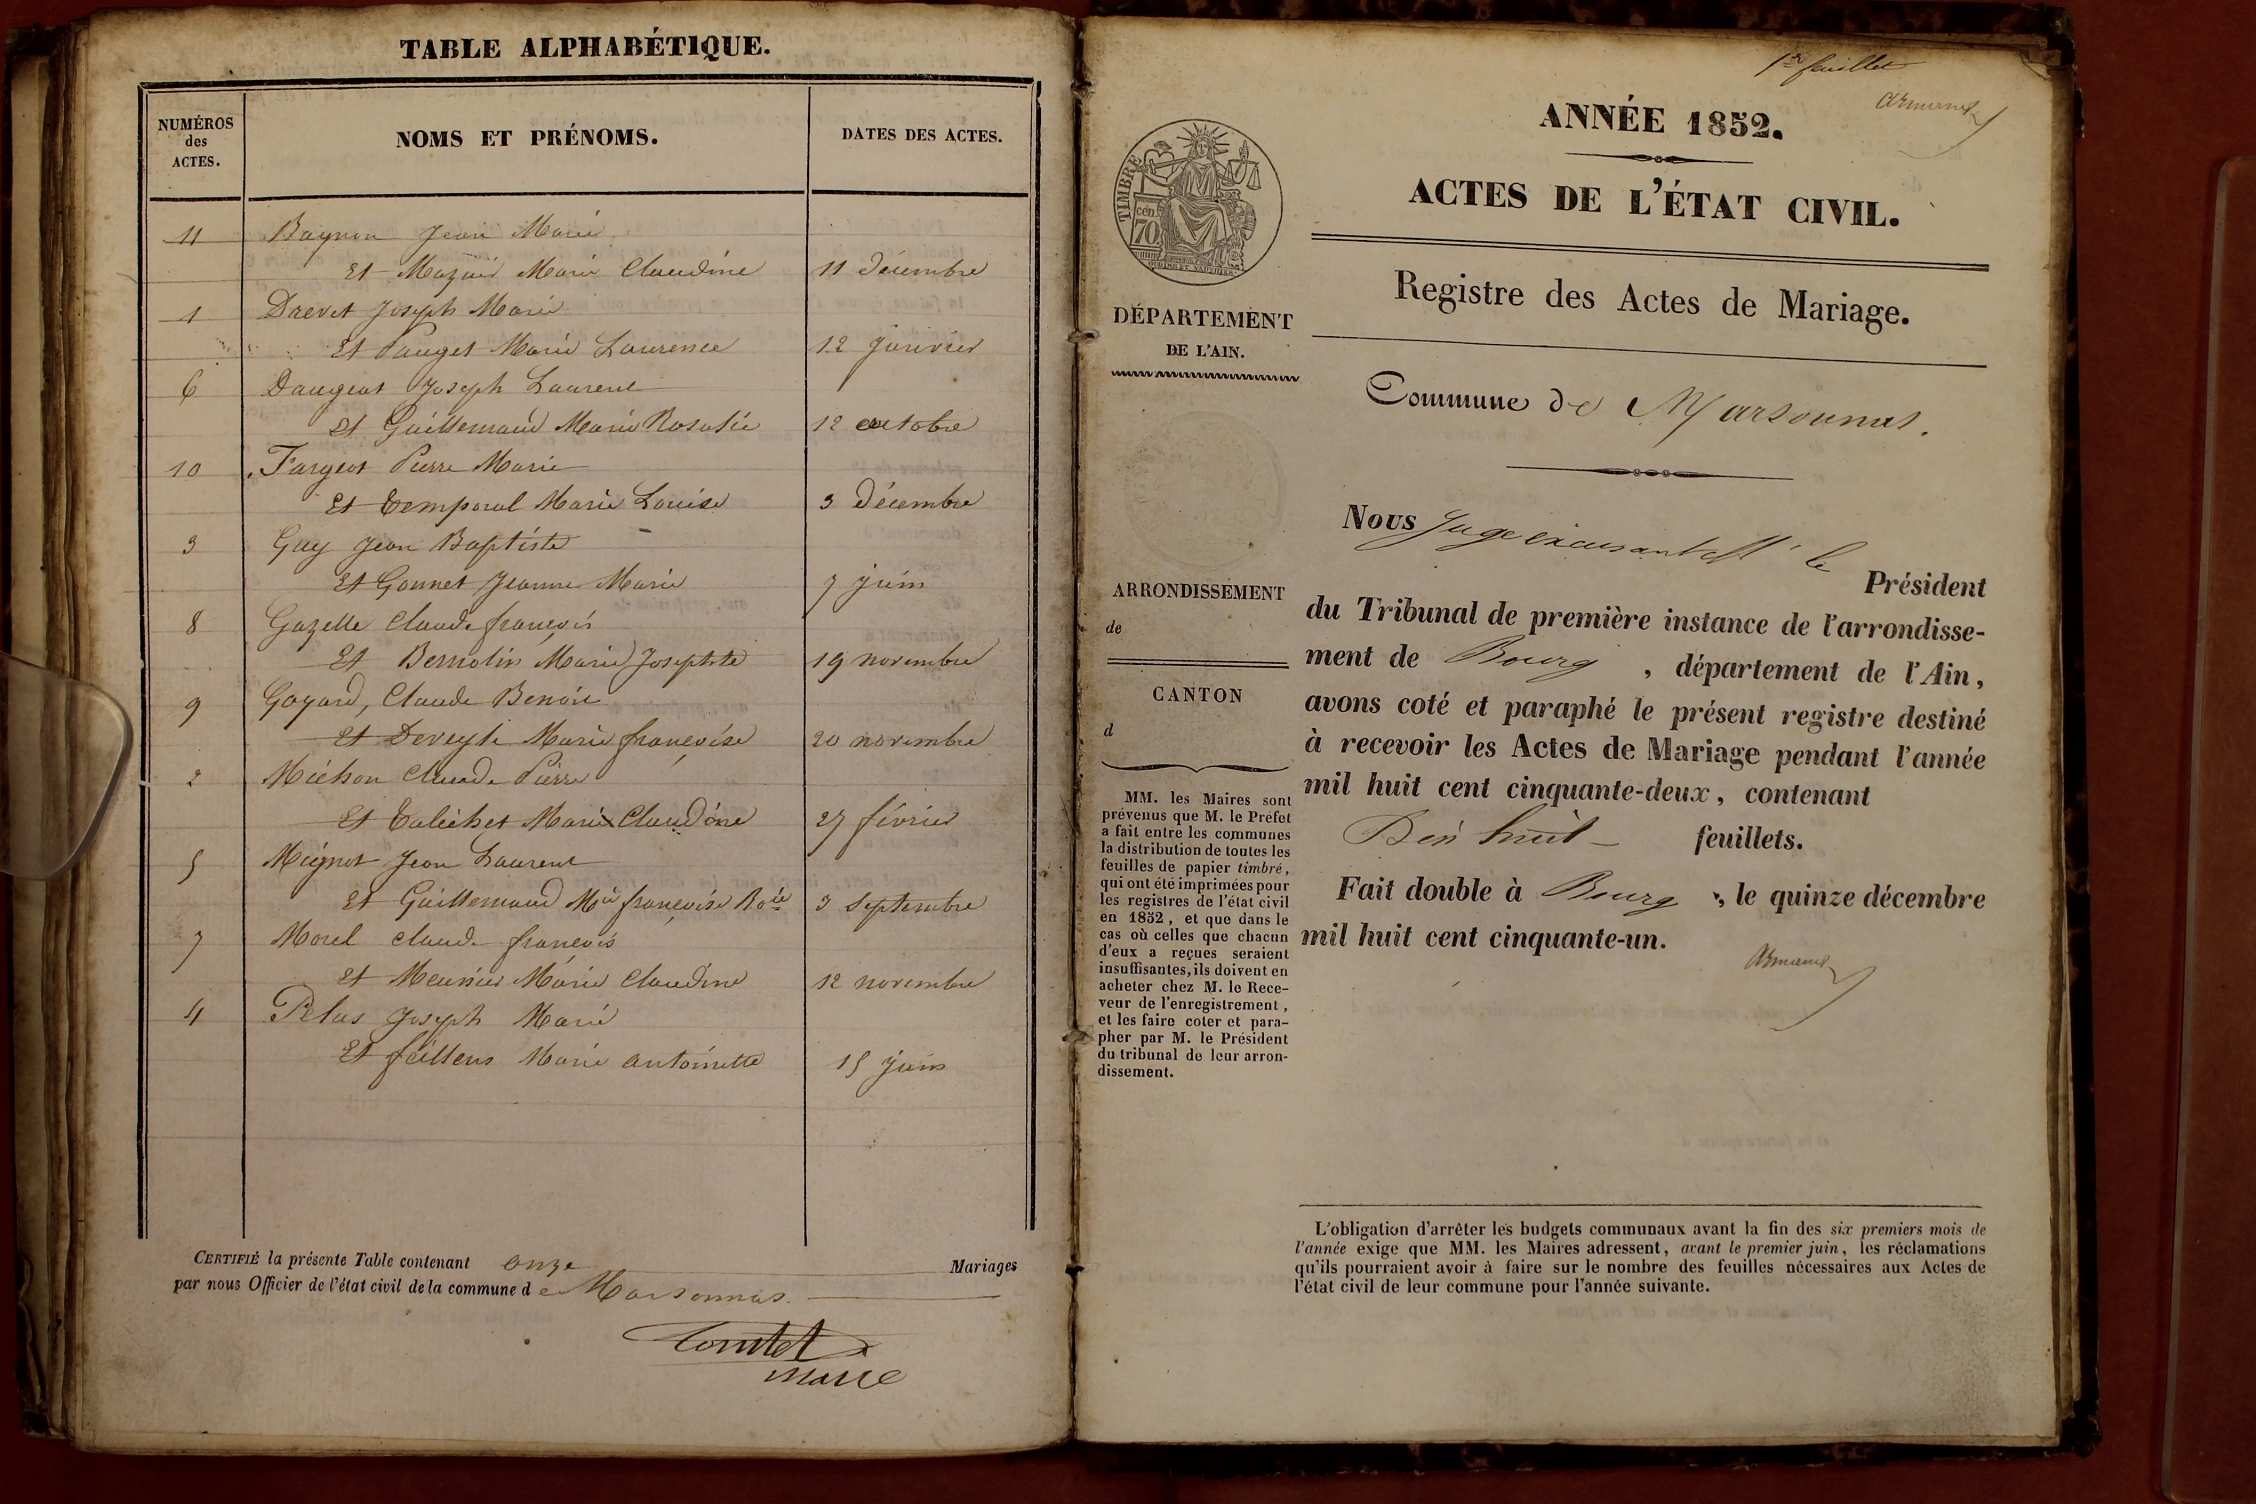 TABLE ALPHABÉTIQUE.
NUMÉROS
des
ACTES.
NOMS ET PRÉNOMS.
DATES DES ACTES.
11 Jean Marie
Et Marie Claudine 11 décembre
1 Drevet Joseph Marie
Et Pauget Marie Laurence 12 janvier
6 Daugeat Joseph Laurent
Et Guillemaud Marie Rosalie 12 octobre
10 Fargeot Pierre Marie
Et Temporal Marie Louise 3 décembre
3 Guy Jean Baptiste
Et Gonnet Jeanne Marie 7 juin
8 Gazelle Claude françois
Et Bernolin Marie Josephte 19 novembre
9 Goyard, Claude Benoit
Et Deveyle Marie françoise 20 novembre
2 Michon Claude Pierre
Et Marie Claudine 27 février
5 Mignot Jean Laurent
Et Guillemaud Mie françoise Rolie 3 septembre
7 Morel Claude françois
Et Meunier Marie Claudine 12 novembre
4 Pelus Joseph Marie
Et feillens Marie antoinette 15 juin
CERTIFIÉ la présente Table contenant onze Mariages
par nous Officier de l'état civil de la commune de Marsonnas.
maire
1er feuillet
ANNÉE 1852.
ACTES DE L'ÉTAT CIVIL.
TIMBRE
70 cen.
Registre des Actes de Mariage.
DÉPARTEMENT
DE L'AIN.
Commune de Marsonnas.
Nous Juge le Président
du Tribunal de première instance de l'arrondisse-
ment de Bourg, département de l'Ain,
avons coté et paraphé le présent registre destiné
à recevoir les Actes de Mariage pendant l'année
mil huit cent cinquante-deux, contenant
huit feuillets.
Fait double à Bourg, le quinze décembre
mil huit cent cinquante-un.
ARRONDISSEMENT
de
CANTON
d
MM. les Maires sont
prévenus que M. le Préfet
a fait entre les communes
la distribution de toutes les
feuilles de papier timbré,
qui ont été imprimées pour
les registres de l'état civil
en 1852, et que dans le
cas où celles que chacun
d'eux a reçues seraient
insuffisantes, ils doivent en
acheter chez M. le Rece-
veur de l'enregistrement,
et les faire coter et para-
pher par M. le Président
du tribunal de leur arron-
dissement.
L'obligation d'arrêter les budgets communaux avant la fin des six premiers mois de
l'année exige que MM. les Maires adressent, avant le premier juin, les réclamations
qu'ils pourraient avoir à faire sur le nombre des feuilles nécessaires aux Actes de
l'état civil de leur commune pour l'année suivante.